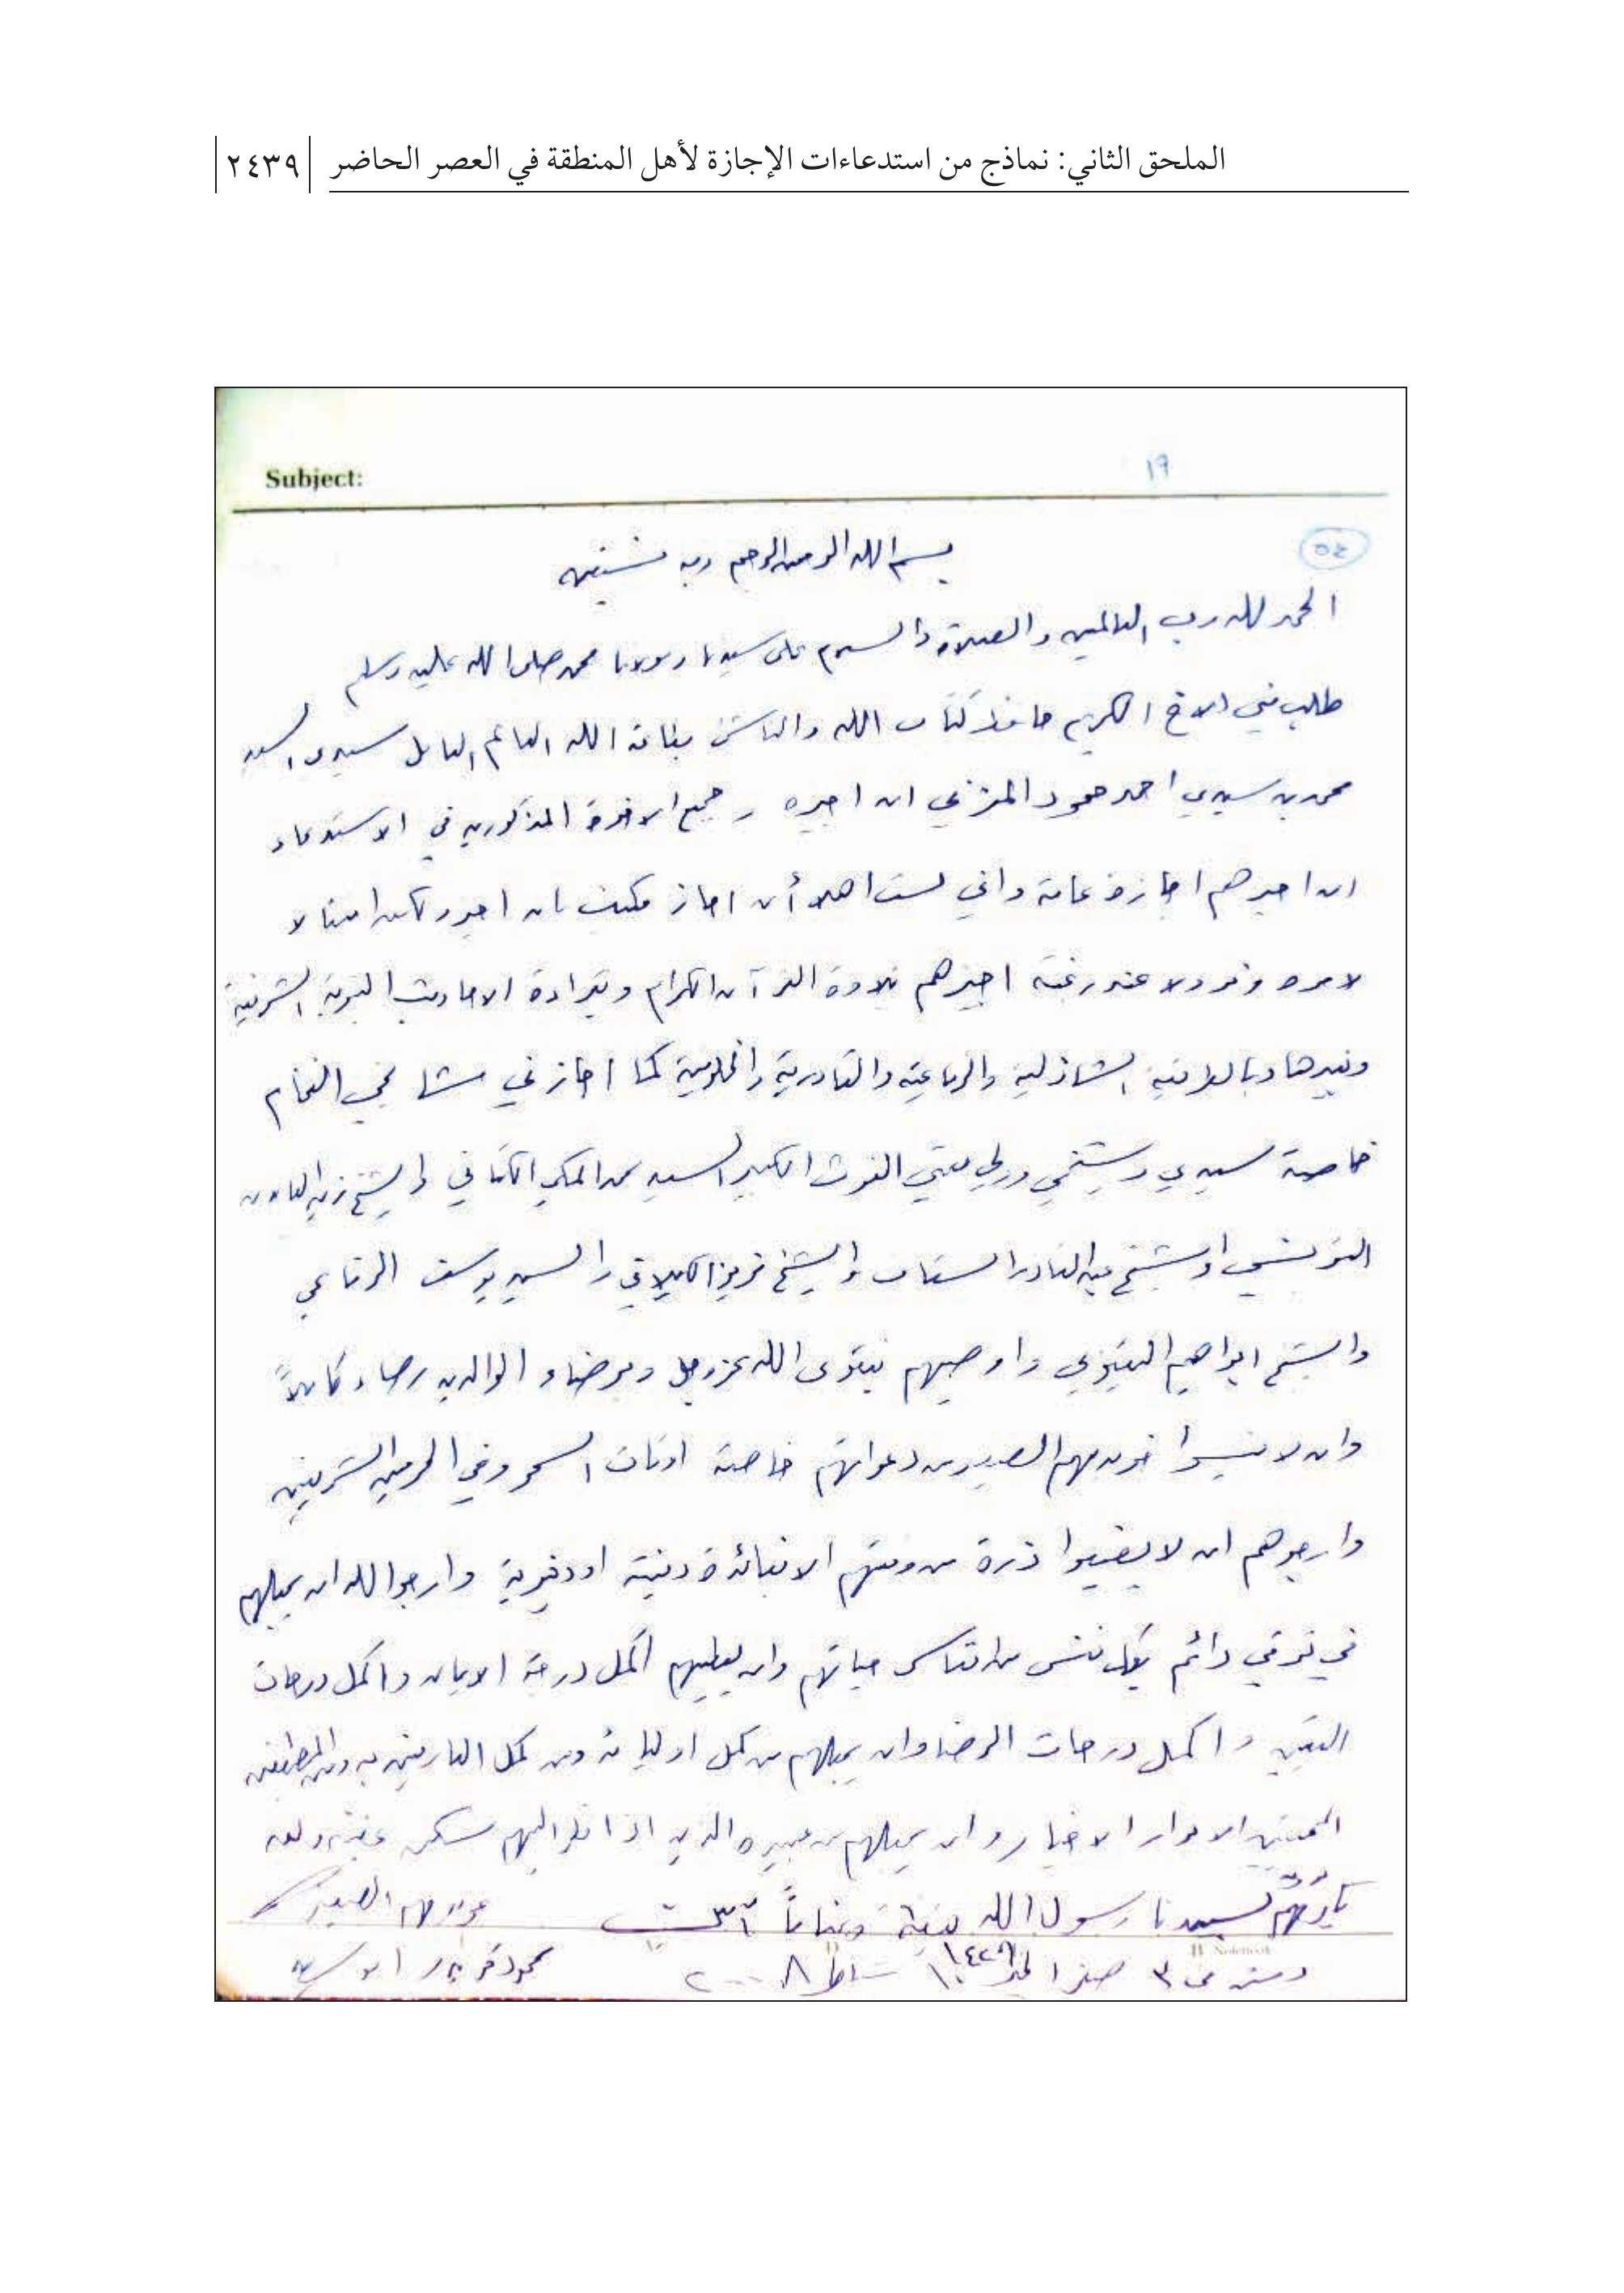 الملحق الثاني: نماذج من استدعاءات الإجازة لأهل المنطقة في العصر الحاضر ٢٤٣٩
Subject: ١٩
٥٤
بسم الله الرحمن الرحيم وبه نستعين
الحمد لله رب العالمين والصلاة والسلام على سيدنا ومولانا محمد صلى الله عليه وسلم
طلب مني الاخ الكريم حافظ كتاب الله والناشئ بطاعة الله العالم العامل سيدي السيد
محمد بن سيدي احمد حمود ان اجيزه وجميع الاخوة المذكورين في الاستدعاء
ان اجيزهم اجازة عامة واني لست اهلا أن اجاز فكيف بان اجيز ولكن امتثالا
لامره ونزولا عند رغبته اجيزهم بتلاوة القرآن الكرام وبقراءة الاحاديث النبوية الشريفة
وغيرها وبالطريقة الشاذلية والرفاعية والقادرية والخلوتية كما اجازني مشايخي الفخام
خاصة سيدي وشيخي وولي نعمتي الغوث الكبير السيد محمد المكي الكتاني والشيخ زين العابدين
التونسي والشيخ عبد القادر السقاف والشيخ الكيلاني والسيد يوسف الرفاعي
والشيخ ابراهيم اليعقوبي واوصيهم بتقوى الله عز وجل وبرضاء الوالدين رضاء كاملاً
وان لا ينسوا من دعواتهم خاصة اوقات السحر وفي الحرمين الشريفين
وارجوهم ان لا يضيعوا ذرة من وقتهم الا بفائدة دينية او دنيوية وارجو الله ان يجعلهم
في ترقي دائم بكل نفس من انفاس حياتهم وان يعطيهم اكمل درجة الايمان واكمل درجات
اليقين واكمل درجات الرضا وان يجعلهم من كمل اوليائه ومن كمل العارفين به ومن
الابرار الاخيار وان يجعلهم من عبيده الذين اذا نظر اليهم سكن غضبه
لسيدنا رسول الله
دمشق في ٣ صفر الخير ١٤٢٩ شباط ٢٠٠٨